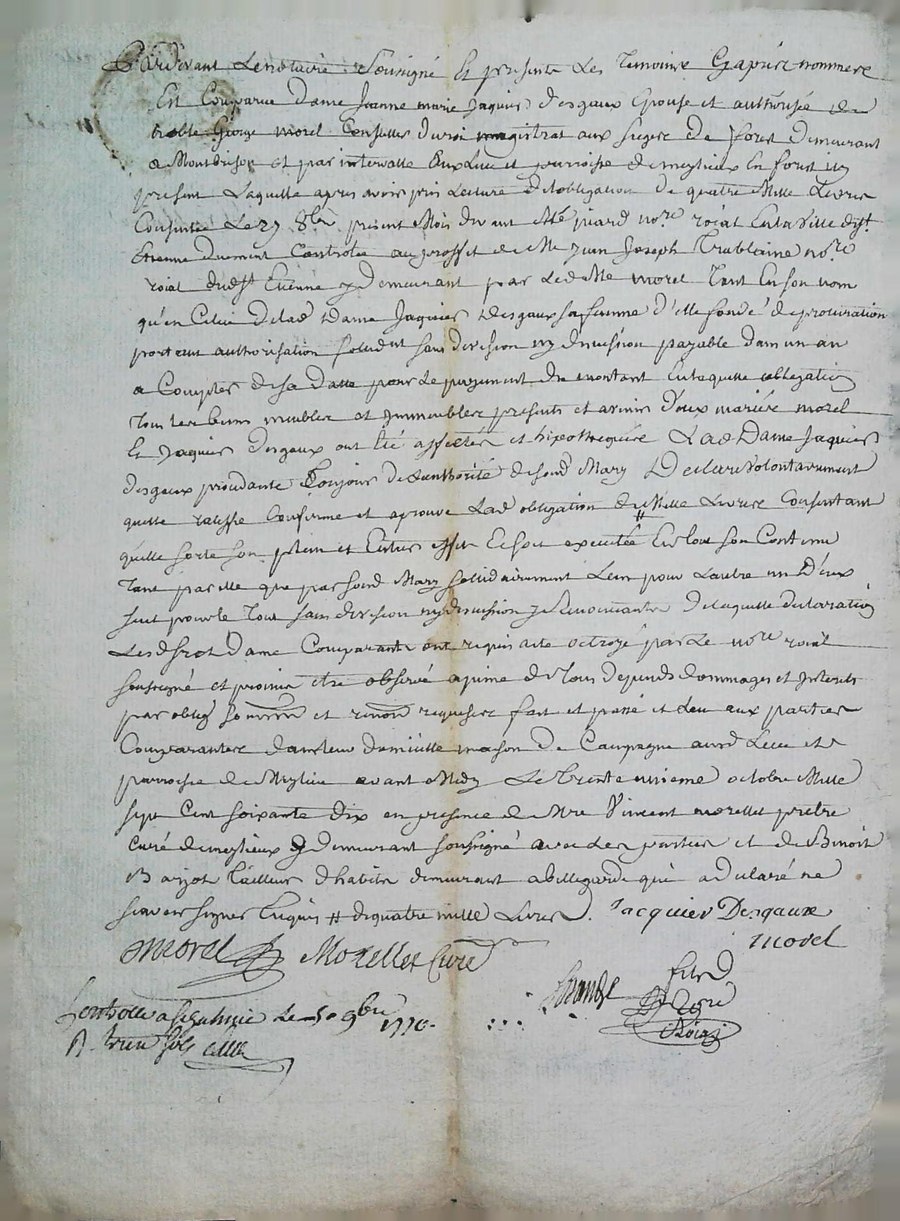 Pardevant Le notaire Sousigné Et presents Les Temoins Cy apres nommes
Est Comparue dame Jeanne marie Jaquier Desgaux Epouse et authorisée de
noble George morel Conseiller du roi magistrat aux sieges de forest demeurant
a Montbrison et par intervalle Aux Lieu et parroisse de meylieux En forest icy
present Laquelle apres avoir pris Lecture de Lobligation de quatre Mille Livres
Consentie Le 27 8bre present Mois devant Me piard nore roial En la Ville de st
Etienne duement Controlée au proffit de Me Jean Joseph Trablaine nore
roial dud st Etienne y demeurant par Led Me morel Tant En son nom
qu'en Celui de lad Dame Jaquier Desgaux sa femme d'elle fondé de procuration
portant authorisation solidt sans division ny discussion payable dans un an
a Compter de sa datte pour Le payement du montant En laquelle obligation
Tous les biens meubles et Immeubles presents et avenir d'eux mariés morel
Et Jaquier desgaux ont Eté affectés et hipothequés Lad Dame Jaquier
desgaux procedante Toujours de Lauthorité de sond Mary Declare Volontairement
quelle ratiffie Confirme et aprouve Lad obligation de # Mille Livres Consentant
quelle sorte son plein et Entier effet Et soit executée En tout son Contenu
Tant par elle que par sond Mary solidairement Lun pour Lautre un D'eux
seul pour le Tout sans division ny discussion y Renoncant De laquelle declaration
Dame Comparante ont requis acte octroyé par Le nore roial
sousigné et promis etre observé a peine de Tous depends dommages et Interets
par oblig soumission et renon requises fait et passé et Leu aux parties
Comparantes dans leur domicille maison de Campagne aud Lieu et
parroisse de Meylieu avant Midy Le Trente unieme octobre Mille
sept Cent soixante dix en presence de Mre Vincent morellet pretre
Curé de meylieux y demeurant sousigné avec Les parties et de Benoit
Barjot Tailleur d'habits demeurant a bellegarde qui a declaré ne
scavoir signer Enquis # de quatre mille Livres. Jacquier Desgaux
morel Morellet Curé morel
Controllé a st galmier Le 5e 9bre 1770.
R. treize sols